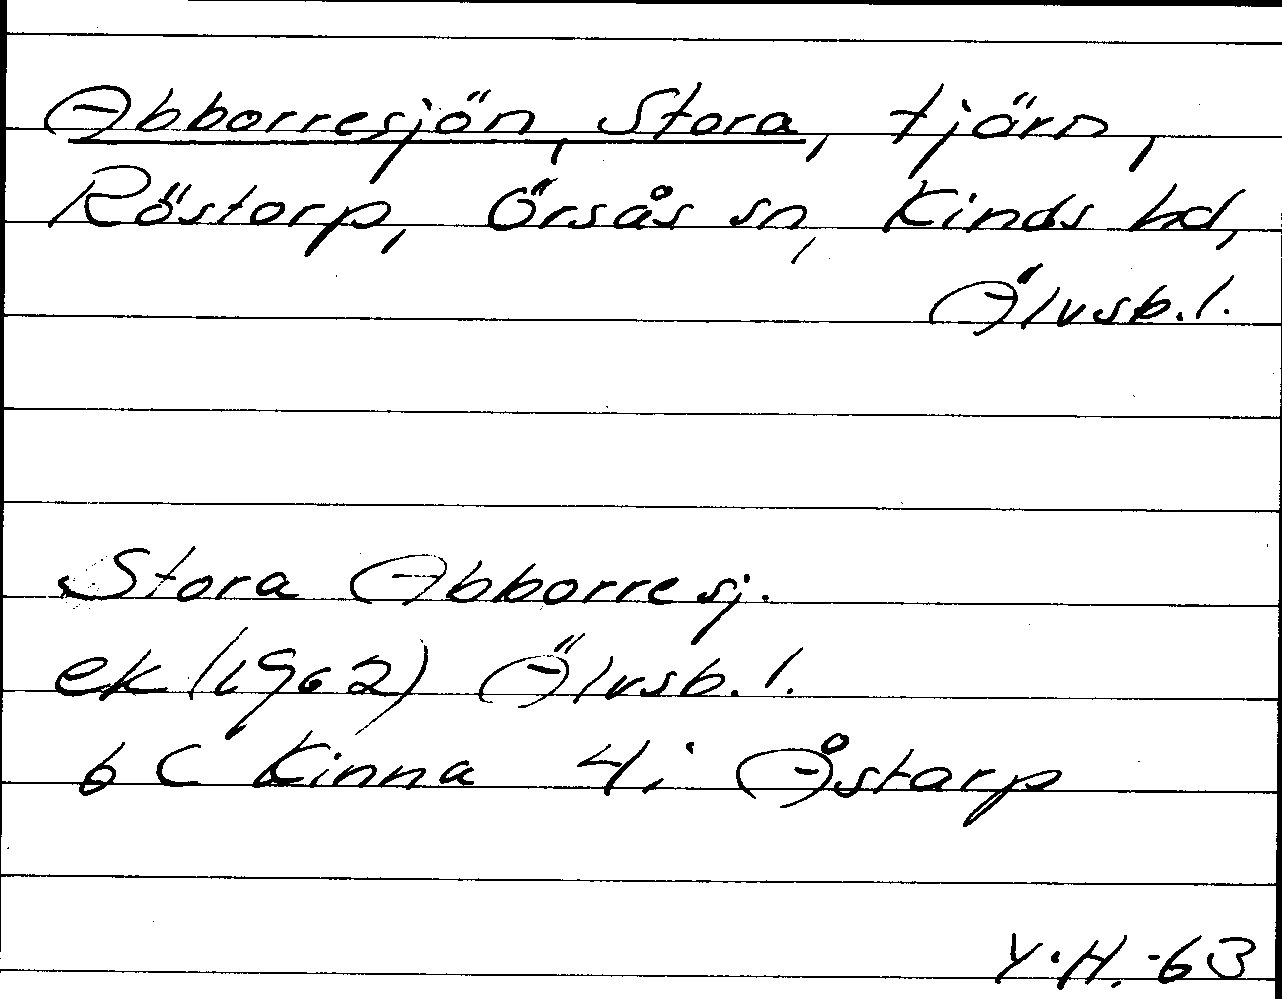 Abborresjön, Stora, tjärn,
Röstorp, Örsås sn, Kinds hd,
Älvsb. l.
Stora Abborresj.
ek (1962) Älvsb. l.
6 C Kinna 4 i Åstarp
Y.H. -63